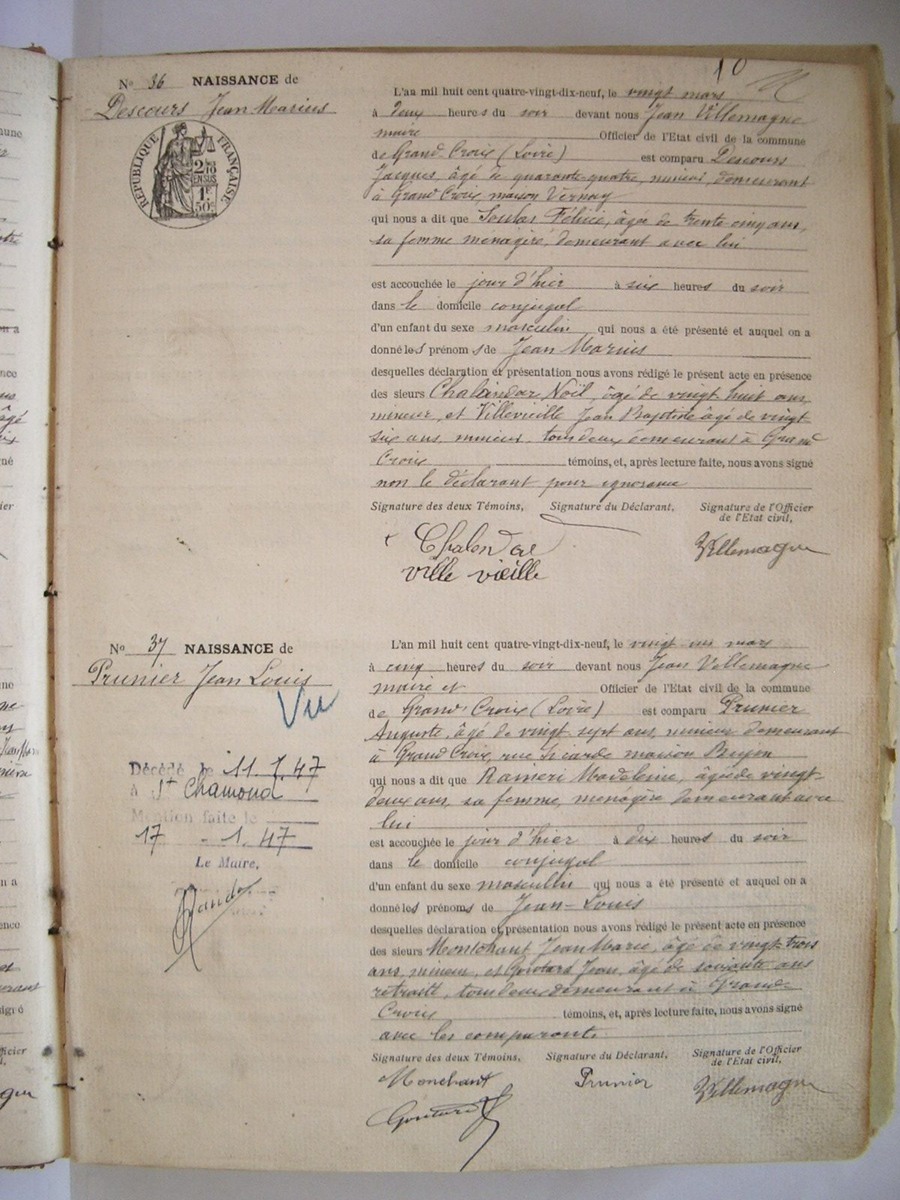 10
N° 36 NAISSANCE de
Descours Jean Marius
RÉPUBLIQUE FRANÇAISE
2/10 EN SUS
1F 50c
L'an mil huit cent quatre-vingt-dix-neuf, le vingt mars
à deux heures du soir devant nous Jean Villemagne
maire Officier de l'Etat civil de la commune
de Grand'Croix (Loire) est comparu Descours
Jacques, âgé de quarante quatre, mineur, demeurant
à Grand'Croix, maison Vernay
qui nous a dit que Soulas Félicie, âgée de trente cinq ans,
sa femme ménagère, demeurant avec lui
est accouchée le jour d'hier à six heures du soir
dans le domicile conjugal
d'un enfant du sexe masculin qui nous a été présenté et auquel on a
donné les prénoms de Jean Marius
desquelles déclaration et présentation nous avons rédigé le présent acte en présence
des sieurs Chalendar Noël, âgé de vingt huit ans,
mineur, et Villevieille Jean Baptiste âgé de vingt
six ans, mineur, tous deux demeurant à Grand'
Croix témoins, et, après lecture faite, nous avons signé
non le déclarant pour ignorance
Signature des deux Témoins, Signature du Déclarant, Signature de l'Officier
de l'Etat civil,
Chalendar
ville vieille
Villemagne
N° 37 NAISSANCE de
Prunier Jean Louis
Vu
Décédé le 11.1.47
à St Chamond
Mention faite le
17 - 1. 47
Le Maire,
L'an mil huit cent quatre-vingt-dix-neuf, le vingt un mars
à cinq heures du soir devant nous Jean Villemagne
maire et Officier de l'Etat civil de la commune
de Grand'Croix (Loire) est comparu Prunier
Auguste, âgé de vingt sept ans, mineur demeurant
à Grand'Croix, rue maison
qui nous a dit que Madeleine, âgée de vingt
deux ans, sa femme, ménagère demeurant avec
lui
est accouchée le jour d'hier à dix heures du soir
dans le domicile conjugal
d'un enfant du sexe masculin qui nous a été présenté et auquel on a
donné les prénoms de Jean-Louis
desquelles déclaration et présentation nous avons rédigé le présent acte en présence
des sieurs Monchant Jean Marie, âgé de vingt trois
ans, mineur, et Goutard Jean, âgé de soixante ans
retraité, tous deux demeurant à Grand'
Croix témoins, et, après lecture faite, nous avons signé
avec les comparants.
Signature des deux Témoins, Signature du Déclarant, Signature de l'Officier
de l'Etat civil,
Monchant Prunier Villemagne
Goutard